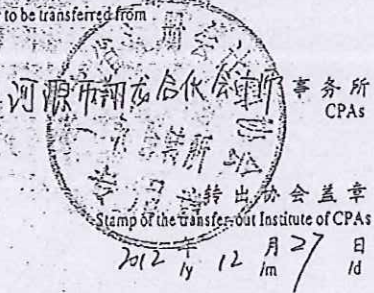 to be transferred from
河源市翔龙合伙会计师事务所
CPAs
转出协会盖章
Stamp of the transfer-out Institute of CPAs
2012 年 12 月 27 日
/y /m /d